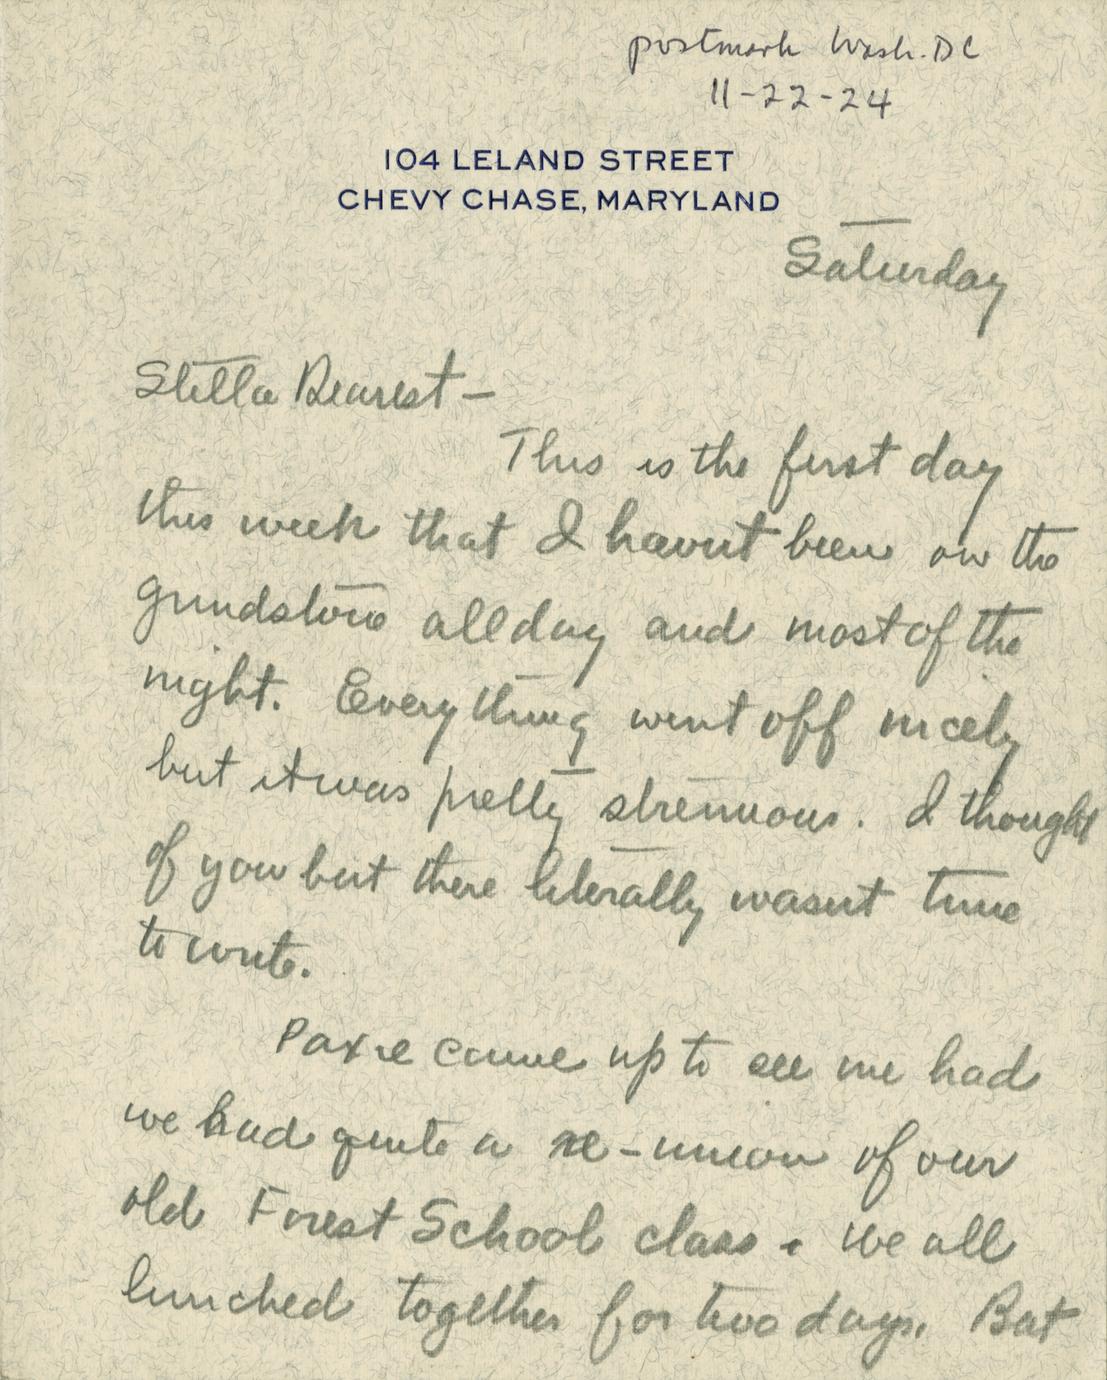 postmark Wash. DC
11-22-24
104 LELAND STREET
CHEVY CHASE, MARYLAND
Saturday
Stella Dearest—
This is the first day
this week that I havn't been on the
grindstone all day and most of the
night. Everything went off nicely
but it was pretty strenuous. I thought
of you but there literally wasnt time
to write.
Paxie came up to see me had
we had quite a re-union of our
old Forest School class. We all
lunched together for two days. But